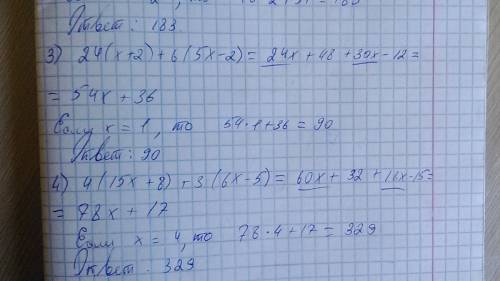 Ответ: 183
3) 24(x+2)+6(5x-2)= 24x+48+30x-12=
= 54x+36
Если x=1, то 54·1+36=90
Ответ: 90
4) 4(15x+8)+3(6x-5)= 60x+32+18x-15=
= 78x+17
Если x=4, то 78·4+17=329
Ответ: 329